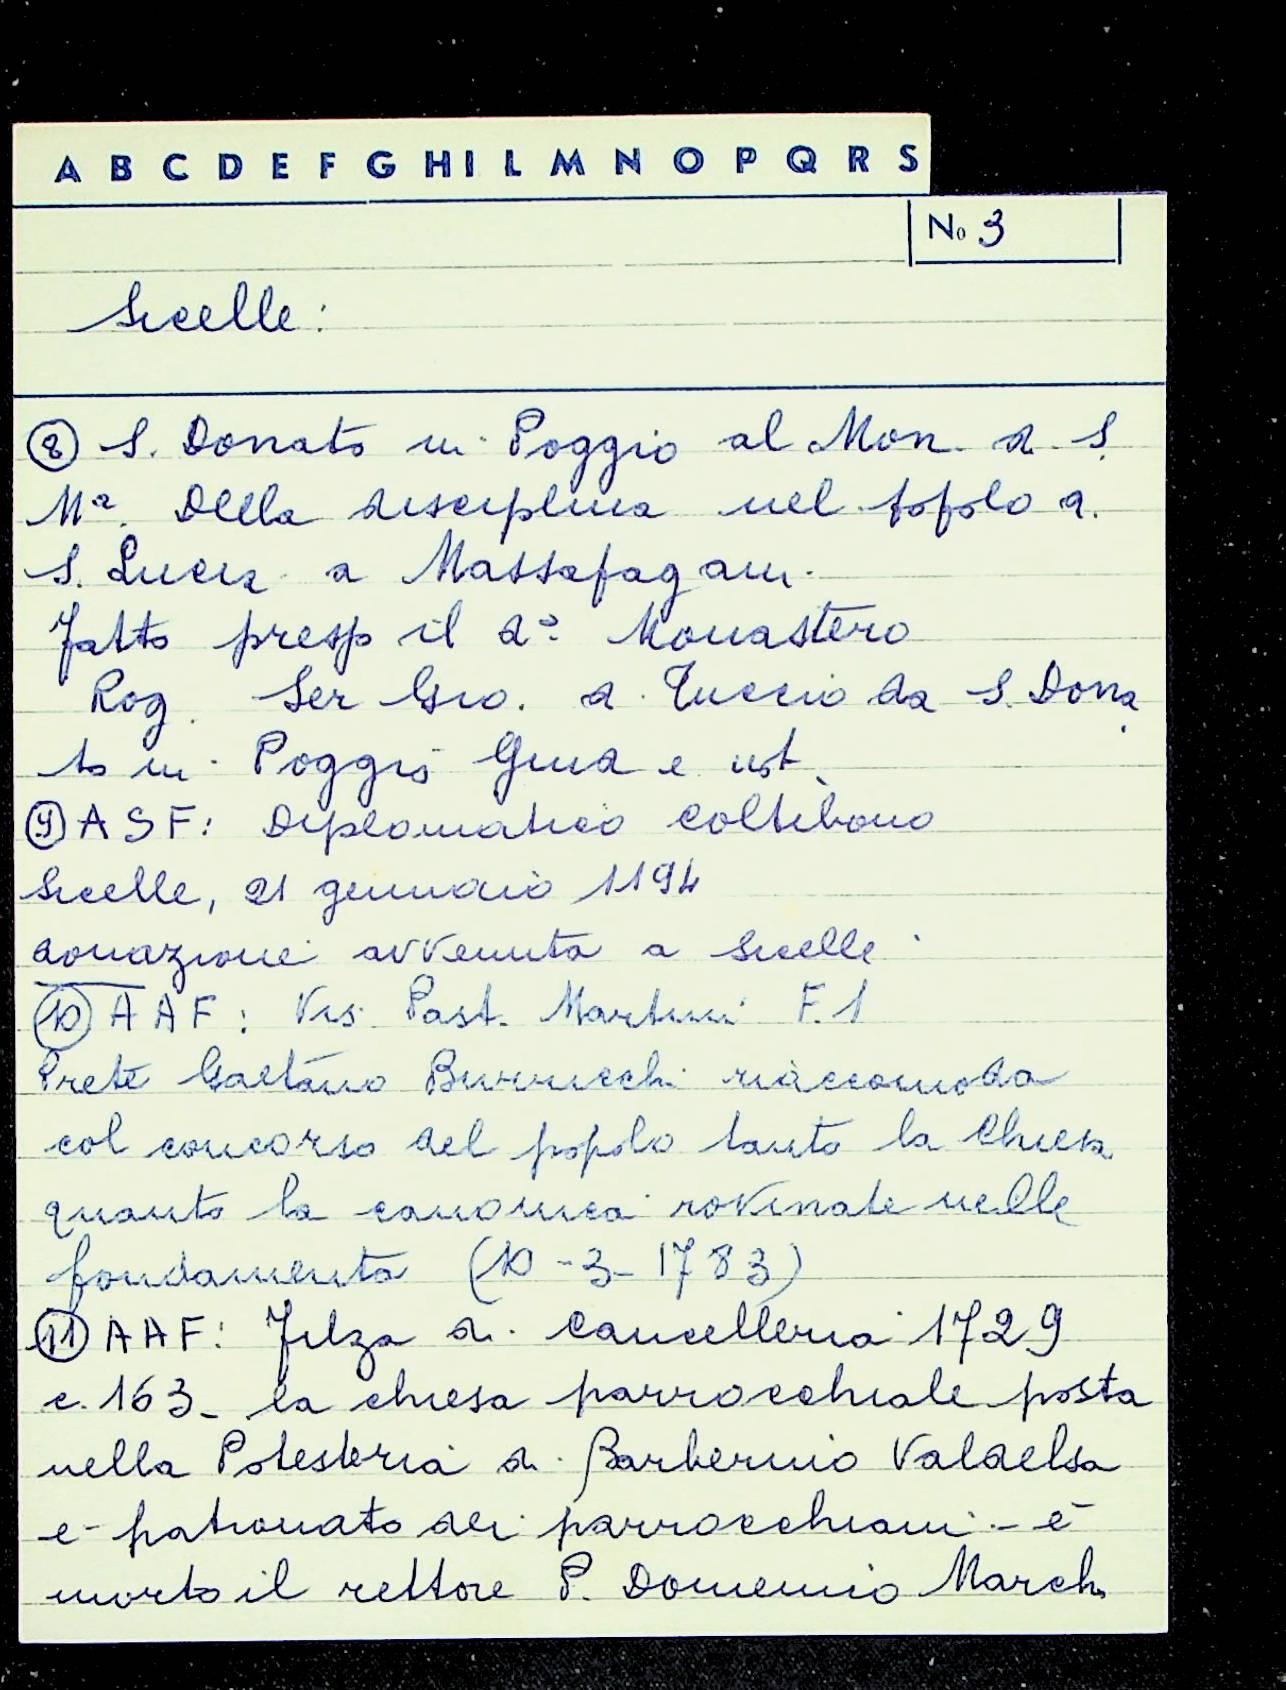 A B C D E F G H I L M N O P Q R S
No 3
Sicelle:
(8) S. Donato in Poggio al Mon. di S.
Ma. Della disciplina nel popolo di
S. Lucia a Massapagani.
Fatto presso il do. Monastero
Rog. Ser Gio. di Tuccio da S. Dona
to in Poggio Giud e not.
(9) ASF: Diplomatico Coltibono
Sicelle, 21 gennaio 1194
donazione avvenuta a Sicelle
(10) AAF: Vis. Past. Martini F. 1
Prete Gaetano Burrucchi riaccomoda
col concorso del popolo tanto la Chiesa
quanto la canonica rovinate nelle
fondamenta (10-3-1783)
(11) AAF: Filza di Cancelleria 1729
c. 163- la chiesa parrocchiale posta
nella Potesteria di Barberino Valdelsa
è patronato dei parrocchiani - è
morto il rettore P. Domenico March